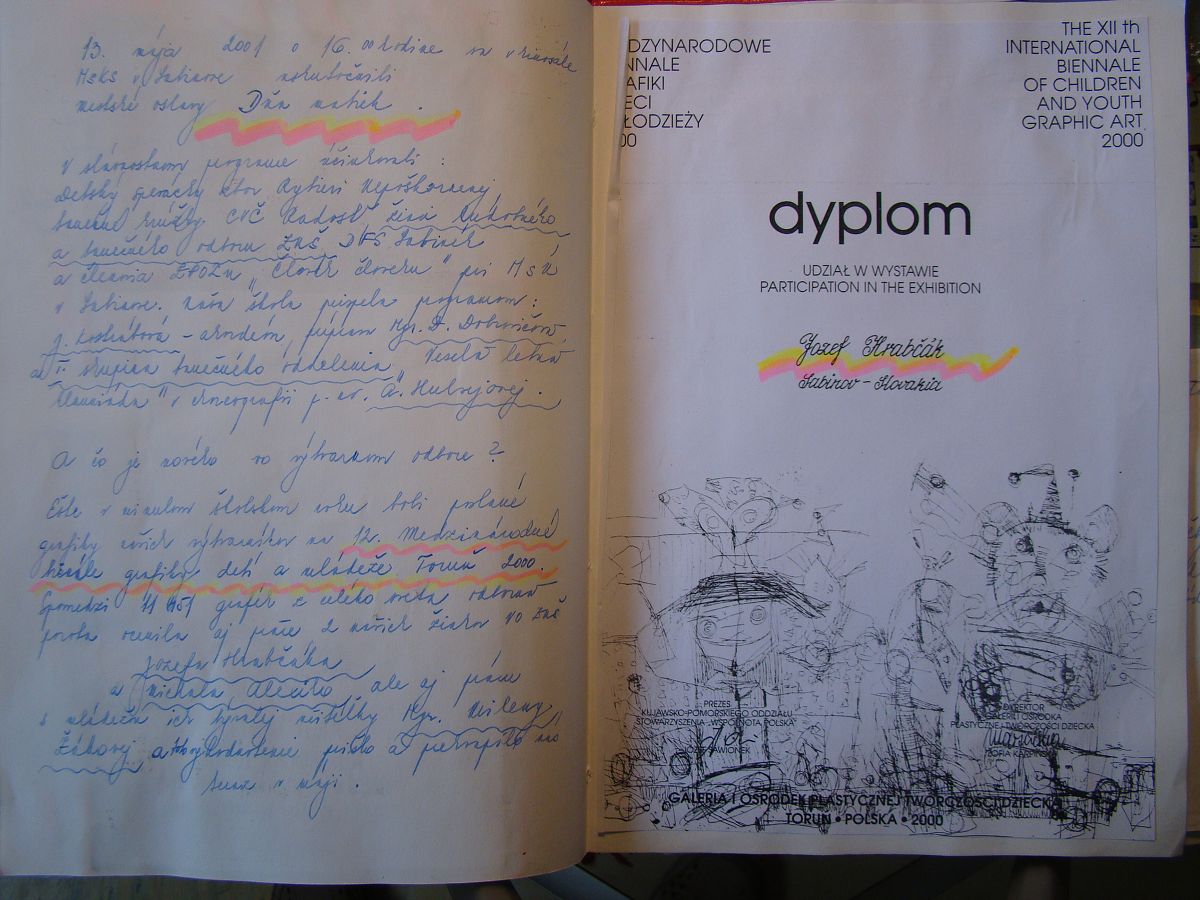 13. mája 2001 o 16.00 hodine sa v kinosále
MsKS v Sabinove uskutočnili
mestské oslavy Dňa matiek.
V slávnostnom programe účinkovali:
Detský spevácky zbor Rytieri Nepoškvrnenej
tanečné krúžky CVČ Radosť, žiaci
a tanečného odboru ZUŠ, DFS Sabinek
a členovia ZPOZu „Človek človeku" pri MsÚ
v Sabinove. Naša škola prispela programom:
J. – akordeón, príprava Mgr. D.
a skupina tanečného oddelenia, Veselá letná
" v choreografii p. uč. A. Hulejovej.
A čo je nového vo výtvarnom odbore?
Ešte v minulom školskom roku boli poslané
grafiky našich výtvarníkov na 12. Medzinárodné
bienále grafiky detí a mládeže Toruň 2000.
Spomedzi grafík z celého sveta odborná
porota ocenila aj práce 2 našich žiakov VO ZUŠ
Jozefa Hrabčáka
a Michala ale aj prácu
s mládežou ich bývalej učiteľky Mgr. Mileny
Žákovej a toto vyhodnotenie prišlo a potrápilo nás
v máji.
DZYNARODOWE
NNALE
AFIKI
ECI
ŁODZIEŻY
00
THE XII th
INTERNATIONAL
BIENNALE
OF CHILDREN
AND YOUTH
GRAPHIC ART
2000
dyplom
UDZIAŁ W WYSTAWIE
PARTICIPATION IN THE EXHIBITION
Jozef Hrabčák
Sabinov – Slovakia
PREZES
KUJAWSKO-POMORSKIEGO ODDZIAŁU
STOWARZYSZENIA „WSPÓLNOTA POLSKA"
DYREKTOR
GALERII I OŚRODKA
PLASTYCZNEJ TWÓRCZOŚCI DZIECKA
GALERIA I OŚRODEK PLASTYCZNEJ TWÓRCZOŚCI DZIECKA
TORUŃ • POLSKA • 2000